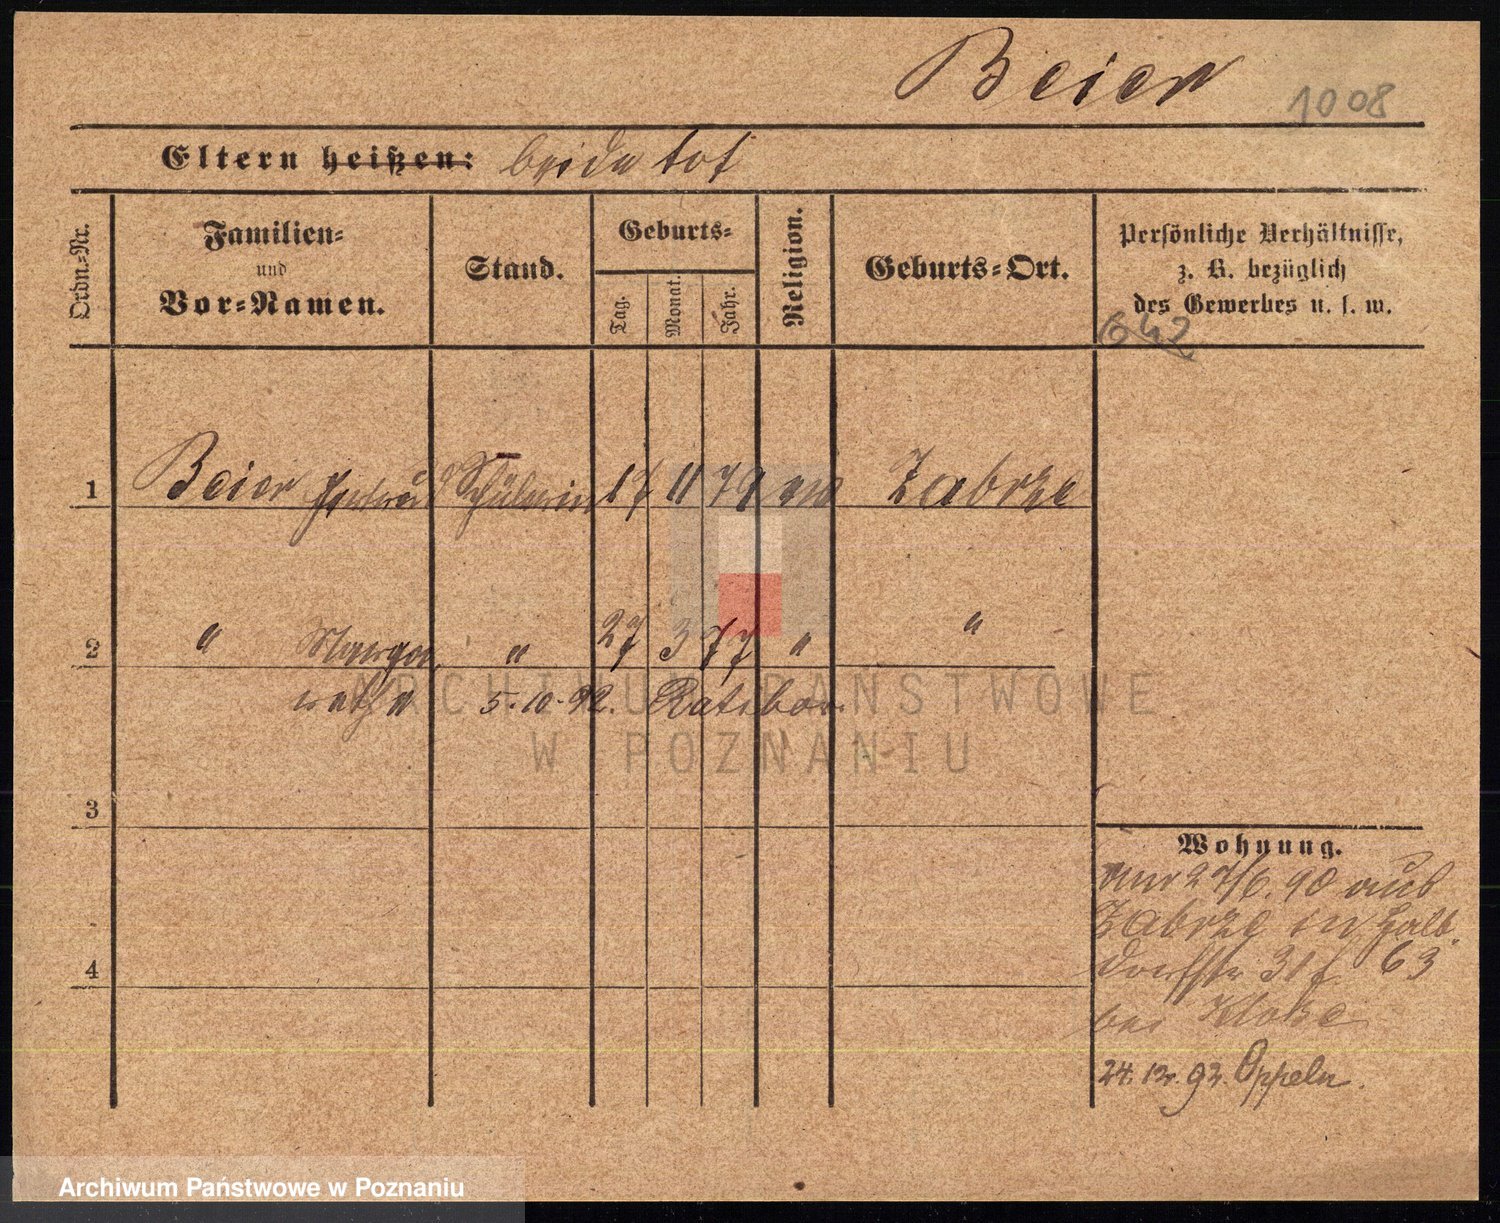 Beier 1008
Eltern heißen: beide tot
Ordn.-Nr.
Familien-
und
Vor-Namen.
Stand.
Geburts-
Tag.
Monat.
Jahr.
Religion.
Geburts-Ort.
Persönliche Verhältnisse,
z. B. bezüglich
des Gewerbes u. s. w.
642
1 Beier Gertrud Schülerin 17 11 79 Zabrze
2 " Marga- " 27 3 77 " "
retha 5.10.92. Ratibor.
ARCHIWUM PAŃSTWOWE
W POZNANIU
3
Wohnung.
27/6.90 aus
Zabrze in Halb-
dorfstr 31 63
bei
4
24.12.92. Oppeln.
Archiwum Państwowe w Poznaniu